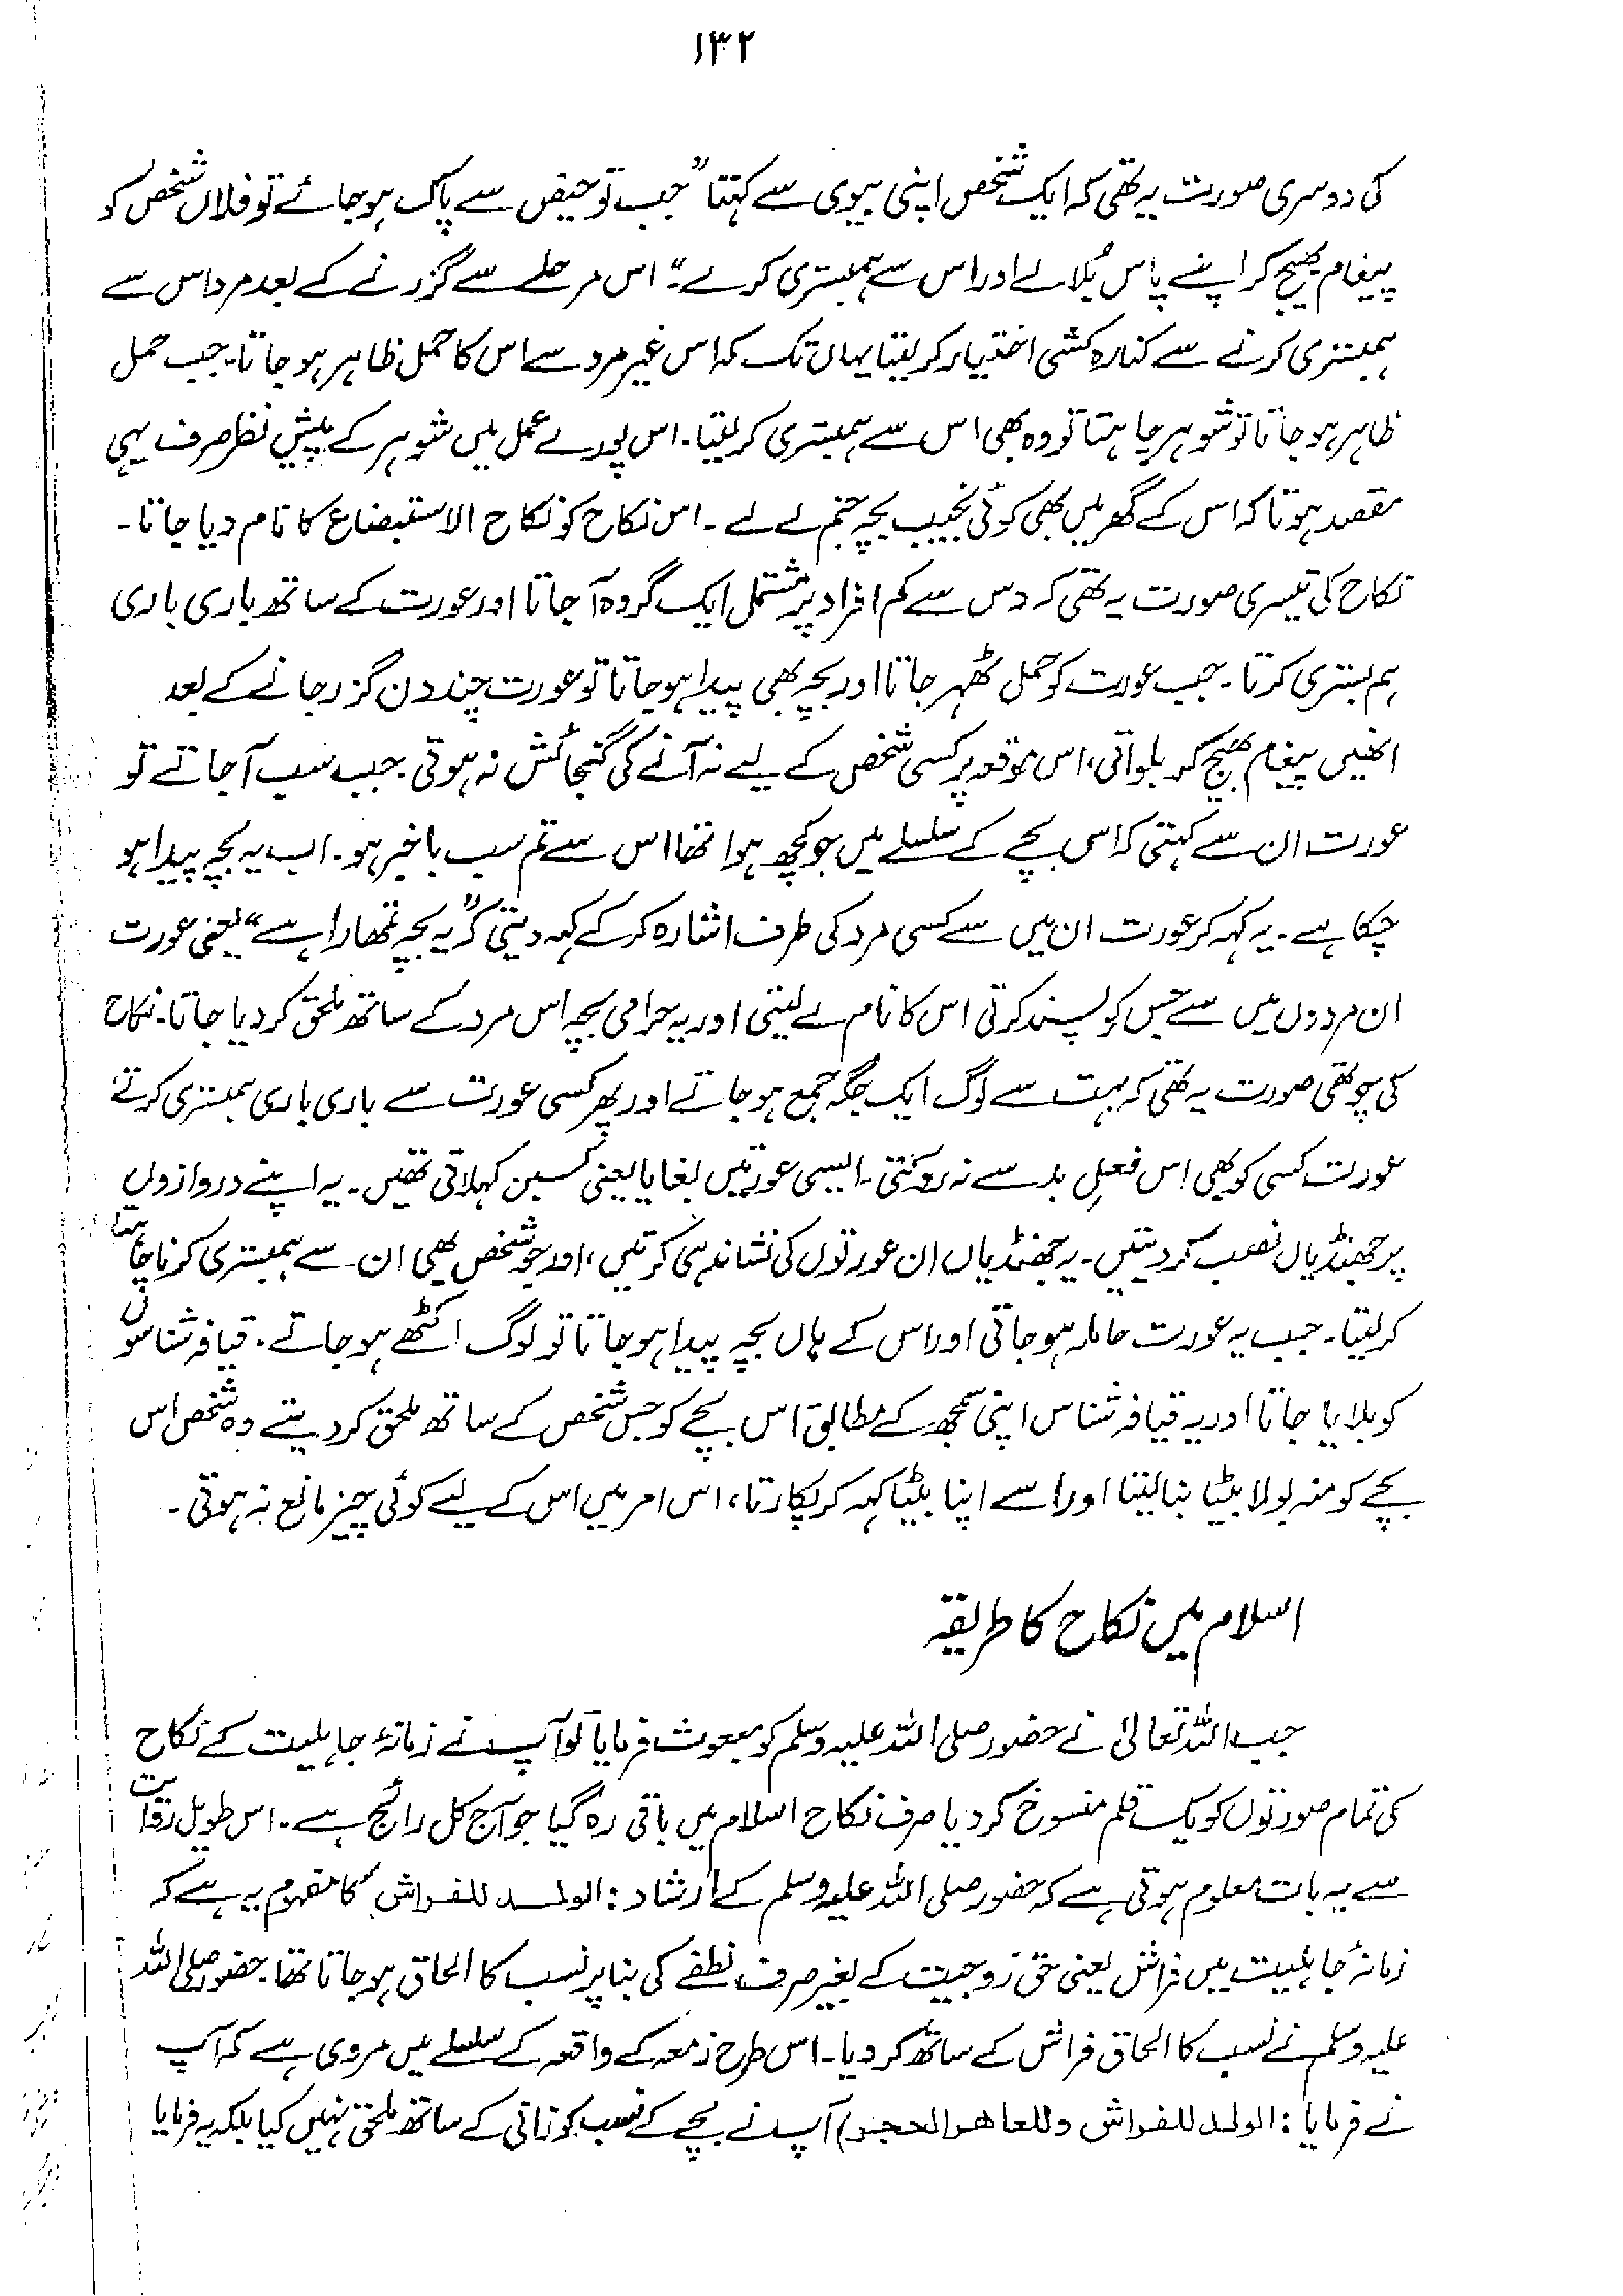 ۱۳۲
کی دوسری صورت یہ تھی کہ ایک شخص اپنی بیوی سے کہتا "جب تو حیض سے پاک ہو جائے تو فلاں شخص کو
پیغام بھیج کر اپنے پاس بُلا لے اور اس سے ہمبستری کر لے"۔ اس مرحلے سے گزرنے کے بعد مرد اس سے
ہمبستری کرنے سے کنارہ کشی اختیار کر لیتا یہاں تک کہ اس غیر مرد سے اس کا حمل ظاہر ہو جاتا۔ جب حمل
ظاہر ہو جاتا تو شوہر چاہتا تو وہ بھی اس سے ہمبستری کر لیتا۔ اس پورے عمل میں شوہر کے پیش نظر صرف یہی
مقصد ہوتا کہ اس کے گھر میں بھی کوئی نجیب بچہ جنم لے لے۔ اس نکاح کو نکاح الاستبضاع کا نام دیا جاتا۔
نکاح کی تیسری صورت یہ تھی کہ دس سے کم افراد پر مشتمل ایک گروہ آ جاتا اور عورت کے ساتھ باری باری
ہم بستری کرتا۔ جب عورت کو حمل ٹھہر جاتا اور بچہ بھی پیدا ہو جاتا تو عورت چند دن گزر جانے کے بعد
انھیں پیغام بھیج کر بلواتی، اس موقعہ پر کسی شخص کے لیے نہ آنے کی گنجائش نہ ہوتی۔ جب سب آ جاتے تو
عورت ان سے کہتی کہ اس بچے کے سلسلے میں جو کچھ ہوا تھا اس سے تم سب باخبر ہو۔ اب یہ بچہ پیدا ہو
چکا ہے۔ یہ کہہ کر عورت ان میں سے کسی مرد کی طرف اشارہ کر کے کہہ دیتی کہ "یہ بچہ تمھارا ہے" یعنی عورت
ان مردوں میں سے جس کو پسند کرتی اس کا نام لے لیتی اور یہ حرامی بچہ اس مرد کے ساتھ ملحق کر دیا جاتا۔ نکاح
کی چوتھی صورت یہ تھی کہ بہت سے لوگ ایک جگہ جمع ہو جاتے اور پھر کسی عورت سے باری باری ہمبستری کرتے
عورت کسی کو بھی اس فعلِ بد سے نہ روکتی۔ ایسی عورتیں بغایا یعنی کسبین کہلاتی تھیں۔ یہ اپنے دروازوں
پر جھنڈیاں نصب کر دیتیں۔ یہ جھنڈیاں ان عورتوں کی نشاندہی کرتیں، اور جو شخص بھی ان سے ہمبستری کرنا چاہتا
کر لیتا۔ جب یہ عورت حاملہ ہو جاتی اور اس کے ہاں بچہ پیدا ہو جاتا تو لوگ اکٹھے ہو جاتے۔ قیافہ شناسوں
کو بلایا جاتا اور یہ قیافہ شناس اپنی سمجھ کے مطابق اس بچے کو جس شخص کے ساتھ ملحق کر دیتے وہ شخص اس
بچے کو منہ بولا بیٹا بنا لیتا اور اسے اپنا بیٹا کہہ کر پکارتا، اس امر میں اس کے لیے کوئی چیز مانع نہ ہوتی۔
اسلام میں نکاح کا طریقہ
جب اللہ تعالیٰ نے حضور صلی اللہ علیہ وسلم کو مبعوث فرمایا تو آپ نے زمانۂ جاہلیت کے نکاح
کی تمام صورتوں کو یک قلم منسوخ کر دیا صرف نکاح اسلام میں باقی رہ گیا جو آج کل رائج ہے۔ اس طویل روایت
سے یہ بات معلوم ہوتی ہے کہ حضور صلی اللہ علیہ وسلم کے ارشاد : الولد للفراش کا مفہوم یہ ہے کہ
زمانۂ جاہلیت میں فراش یعنی حق زوجیت کے بغیر صرف نطفے کی بنا پر نسب کا الحاق ہو جاتا تھا۔ حضور صلی اللہ
علیہ وسلم نے نسب کا الحاق فراش کے ساتھ کر دیا۔ اس طرح زمعہ کے واقعہ کے سلسلے میں مروی ہے کہ آپ
نے فرمایا : الولد للفراش وللعاھر الحجر) آپ نے بچے کے نسب کو زانی کے ساتھ ملحق نہیں کیا بلکہ یہ فرمایا